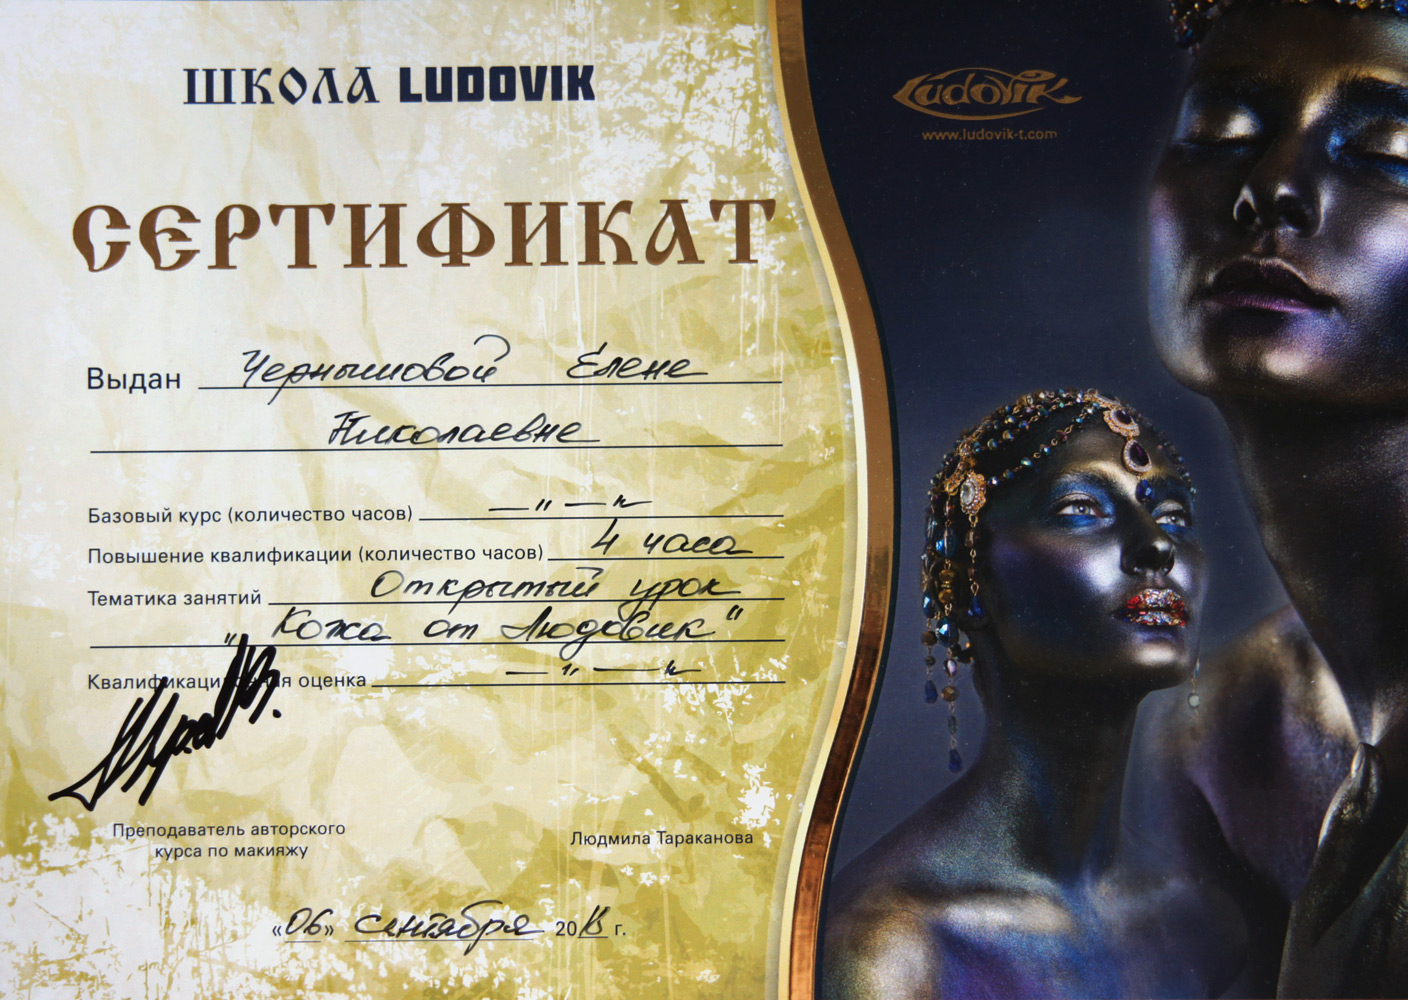 ШКОЛА LUDOVIK
Ludovik
www.ludovik-t.com
СЕРТИФИКАТ
Выдан Чернышовой Елене
Николаевне
Базовый курс (количество часов) — " — "
Повышение квалификации (количество часов) 4 часа
Тематика занятий Открытый урок
"Кожа от Людовик"
Квалификационная оценка — " — "
Преподаватель авторского
курса по макияжу
Людмила Тараканова
«06» сентября 20 г.